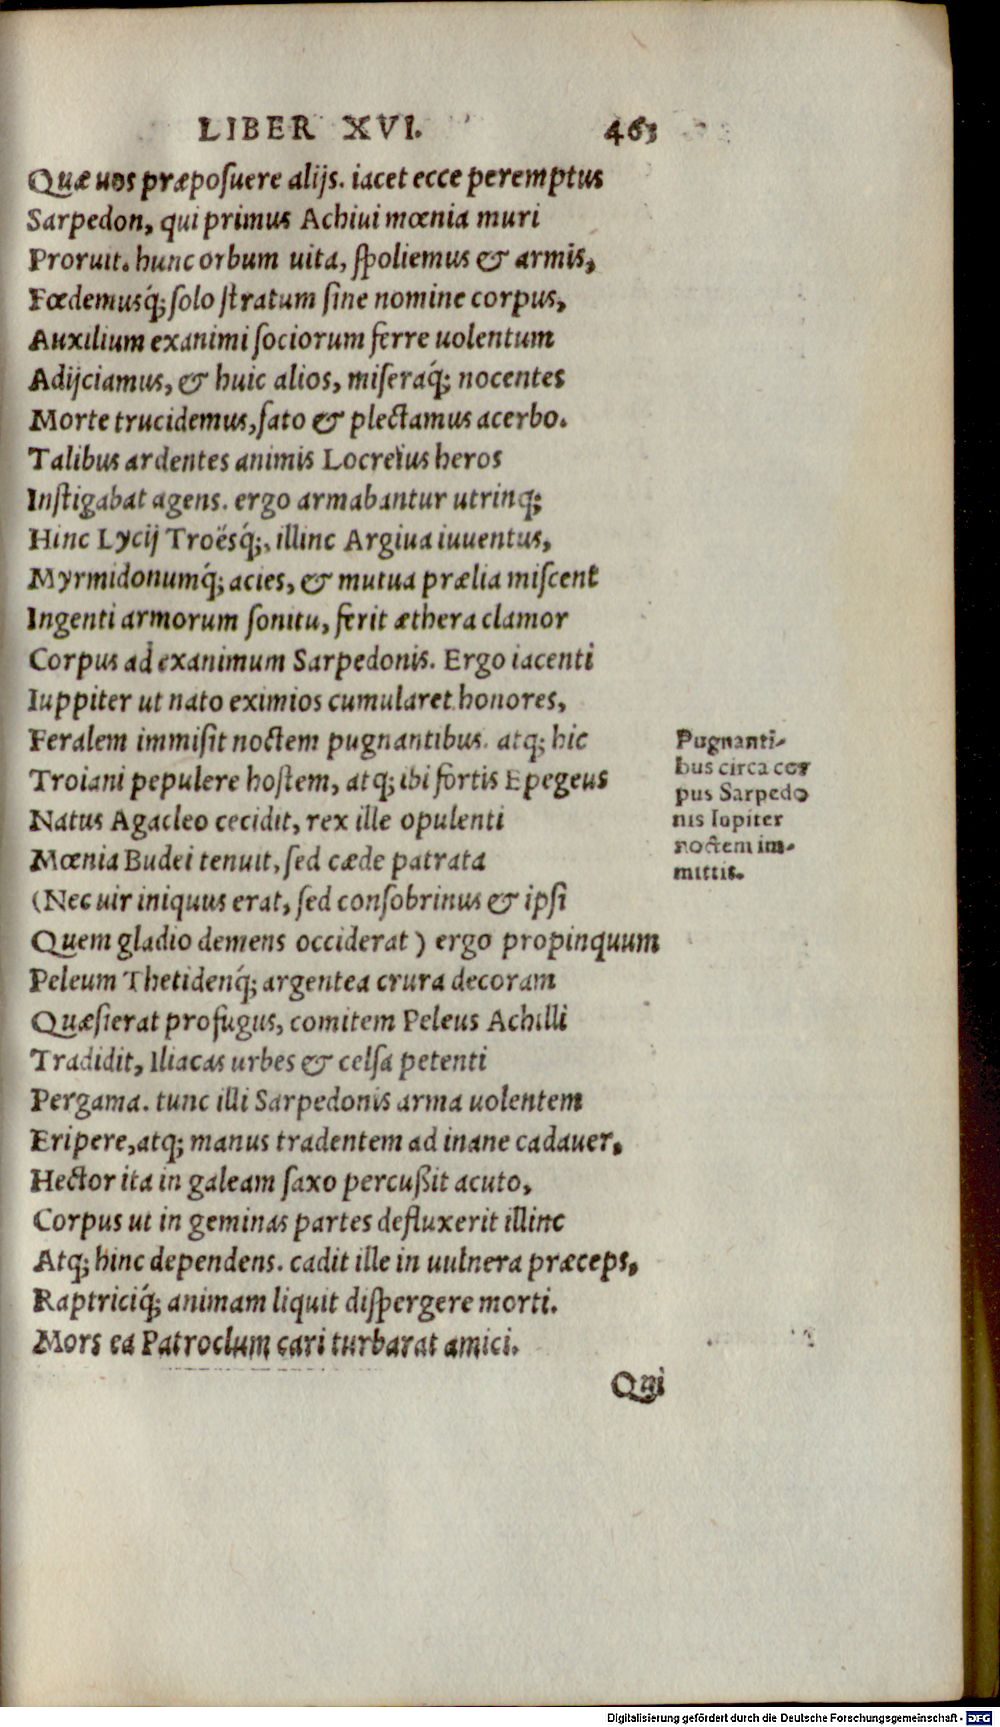 LIBER XVI. 463
Quæ uos præposuere alijs. iacet ecce peremptus
Sarpedon, qui primus Achiui mœnia muri
Proruit. hunc orbum uita, spoliemus & armis,
Fœdemusq́; solo stratum sine nomine corpus,
Auxilium exanimi sociorum ferre uolentum
Adijciamus, & huic alios, miseraq́; nocentes
Morte trucidemus, fato & plectamus acerbo.
Talibus ardentes animis Locreïus heros
Instigabat agens. ergo armabantur utrinq;
Hinc Lycij Troësq́;, illinc Argiua iuuentus,
Myrmidonumq́; acies, & mutua prælia miscent
Ingenti armorum sonitu, ferit æthera clamor
Corpus ad exanimum Sarpedonis. Ergo iacenti
Iuppiter ut nato eximios cumularet honores,
Feralem immisit noctem pugnantibus. atq; hic
Troiani pepulere hostem, atq; ibi fortis Epegeus
Natus Agacleo cecidit, rex ille opulenti
Mœnia Budei tenuit, sed cæde patrata
(Nec uir iniquus erat, sed consobrinus & ipsi
Quem gladio demens occiderat) ergo propinquum
Peleum Thetidenq́; argentea crura decoram
Quæsierat profugus, comitem Peleus Achilli
Tradidit, Iliacas urbes & celsa petenti
Pergama. tunc illi Sarpedonis arma uolentem
Eripere, atq; manus tradentem ad inane cadauer,
Hector ita in galeam saxo percußit acuto,
Corpus ut in geminas partes defluxerit illinc
Atq; hinc dependens. cadit ille in uulnera præceps,
Raptriciq́; animam liquit dispergere morti.
Mors ea Patroclum cari turbarat amici.
Qui
Pugnanti-
bus circa cor
pus Sarpedo
nis Iupiter
noctem im-
mittit.
Digitalisierung gefördert durch die Deutsche Forschungsgemeinschaft - DFG